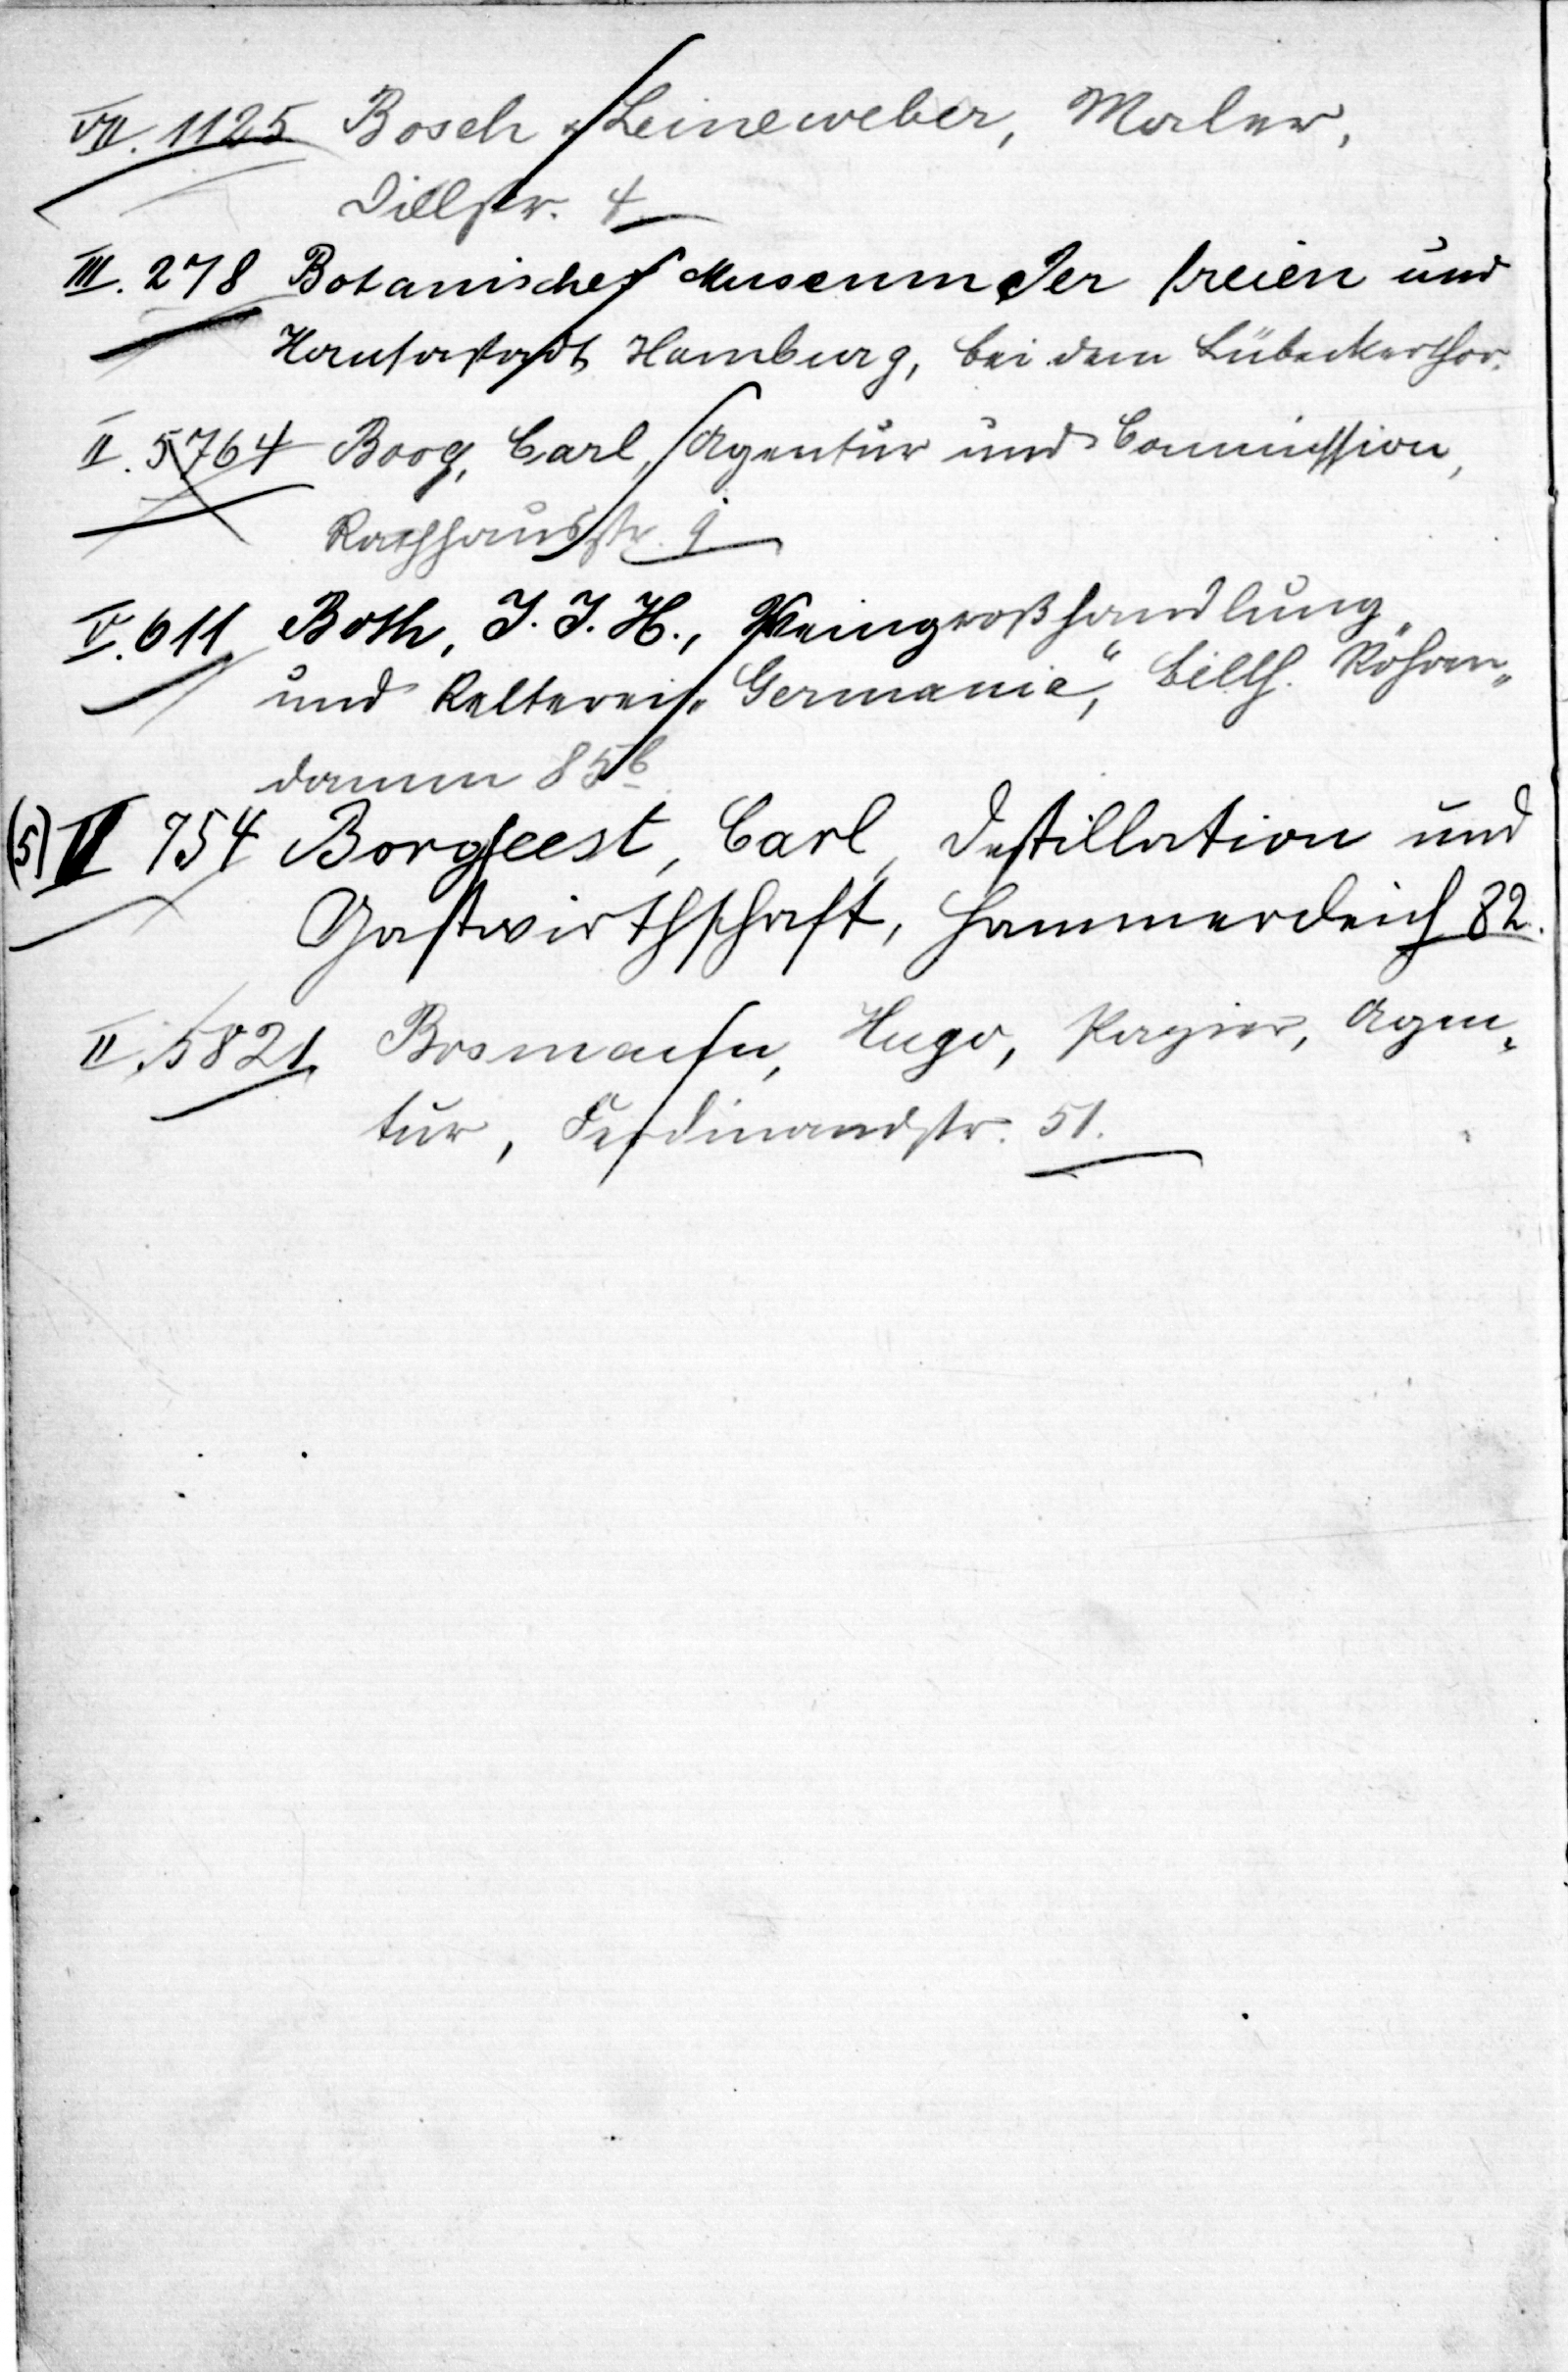 VII. 1125 Bosch & Leineweber, Maler,
Dillstr. 4
III. 278 Botanisches Museum der freien und
Hansastadt Hamburg, bei dem Lübeckerthor.
II. 5764 Boog, Carl, Agentur und Commission,
Rathhausstr. 9
V. 611 Both, J. J. H., Weingroßhandlung
und Kelterei „Germania“, Billh. Röhren„
damm 85b.
(5) V 754 Borgfeest, Carl, Destillation und
Gastwirthschaft, Hammerdeich 82.
II. 5821 Bosmann, Hugo, Papier, Agen„
tur, Ferdinandstr. 51.